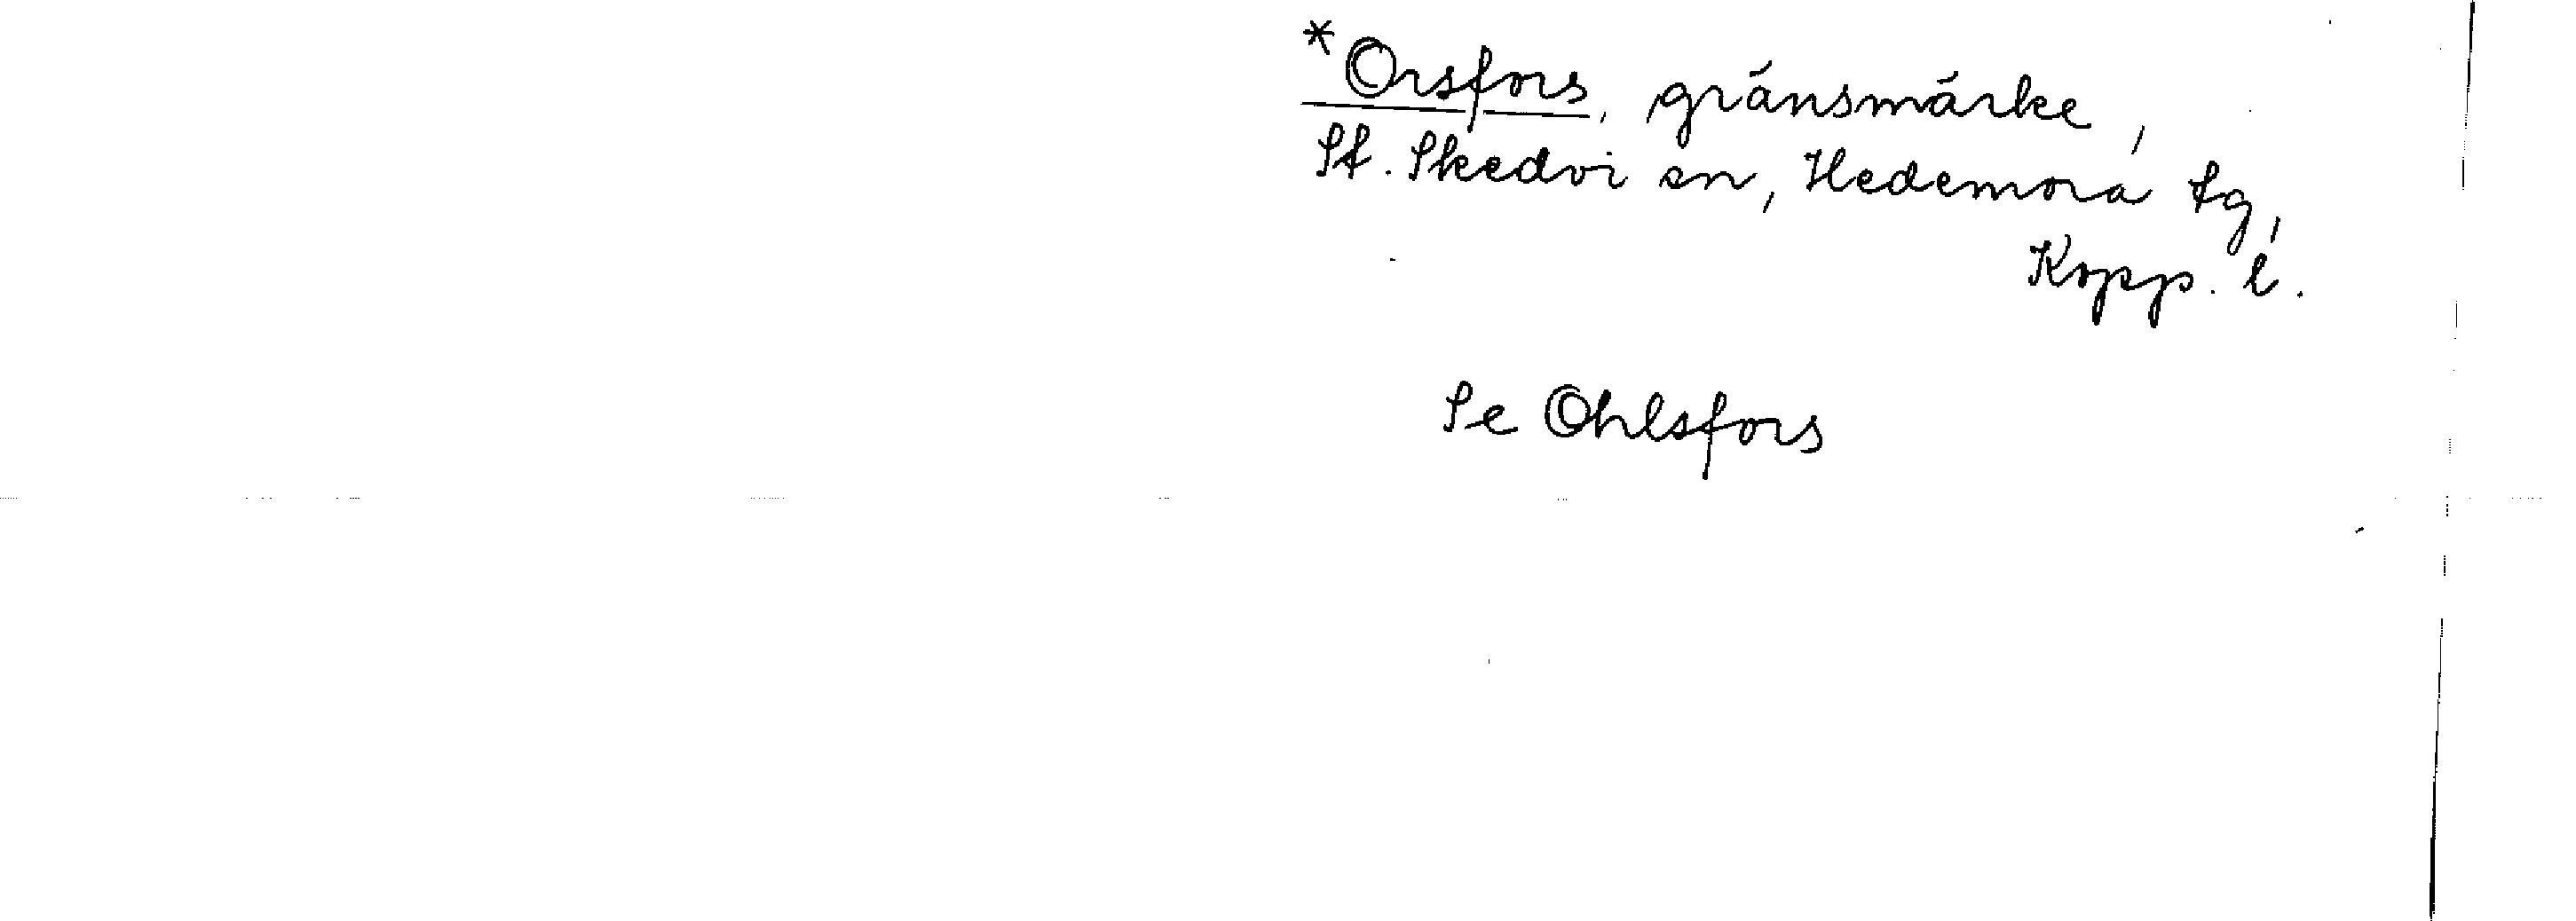 *Orsfors, gränsmärke,
St. Skedvi sn, Hedemora tg,
Kopp. l.
Se Ohlsfors